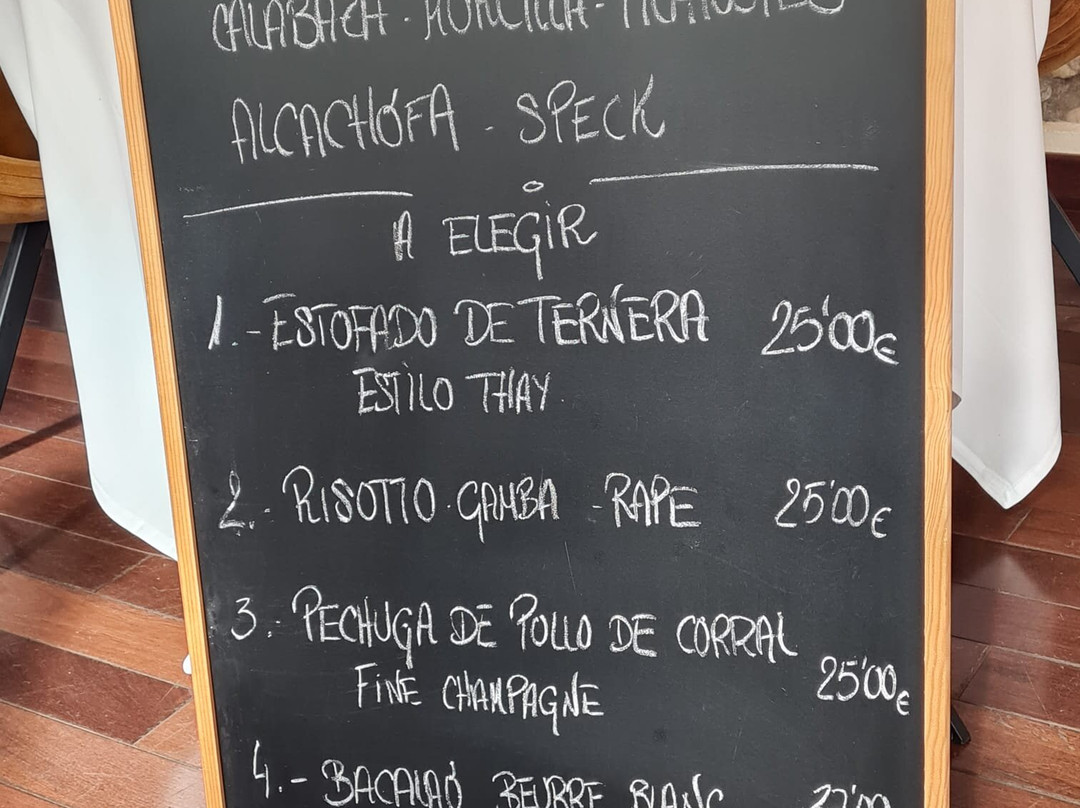 CALABAZA - MORCILLA -
ALCACHÓFA - SPECK
A ELEGIR
1.- ESTOFADO DE TERNERA 25'00€
ESTILO THAY
2.- RISOTTO GAMBA - RAPE 25'00€
3.- PECHUGA DE POLLO DE CORRAL
FINE CHAMPAGNE 25'00€
4.- BACALAO BEURRE BLANC